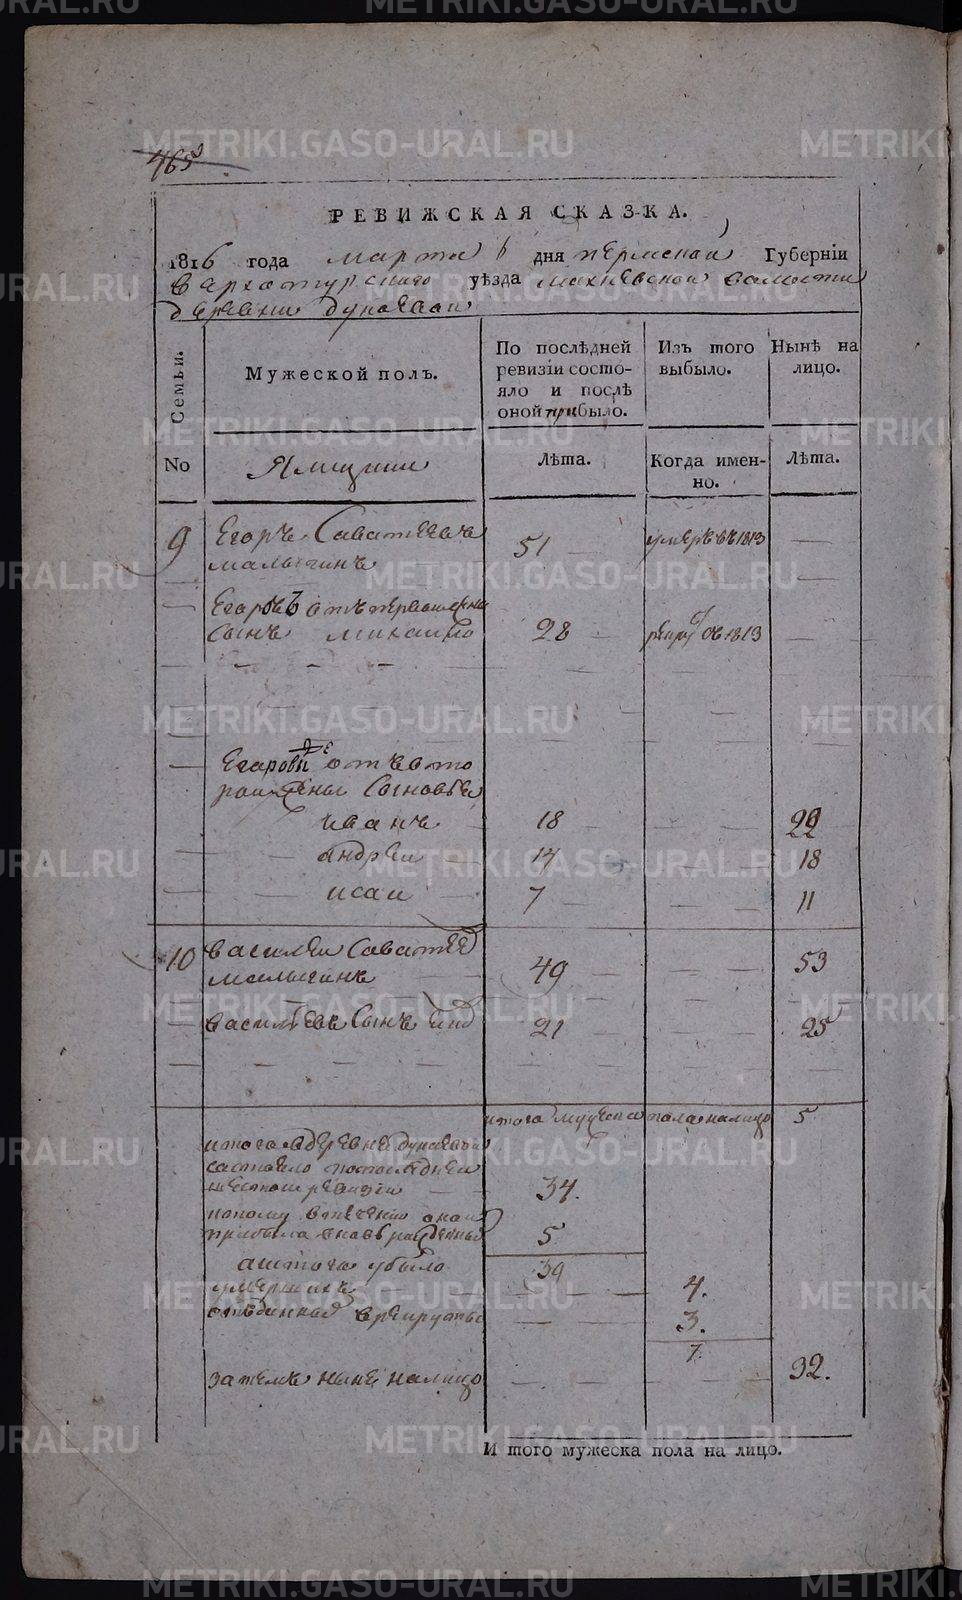 465
РЕВИЖСКАЯ СКАЗКА.
1816 года марта 6 дня пермской Губерніи
верхотурскаго уѣзда махневской волости
деревни дунаевой
Семьи.
Мужеской полъ.
По послѣдней ревизіи состояло и послѣ оной прибыло.
Изъ того выбыло.
Нынѣ на лицо.
No
Ямщики
Лѣта.
Когда именно.
Лѣта.
9 Егоръ Саватѣевъ 51 умеръ въ 1813
малыгинъ
Егоровъ отъ первой жены
сынъ михаило 28 рекру въ 1813
Егоровы отъ вто
рой жены сыновья
иванъ 18 22
андреи 14 18
исаи 7 11
10 василеи саватѣев
малыгинъ 49 53
васильевъ сынъ 21 25
итого мужеска пола налицо 5
итого в деревне дунаевой
состояло попоследней
шестой ревизіи 34.
потому втечение оной
прибыло вновь рожденных 5
39
а изтого убыло
умершихъ 4.
отъданных в рекруты 3.
7.
затемъ ныне налицо 32.
И того мужеска пола на лицо.
METRIKI.GASO-URAL.RU